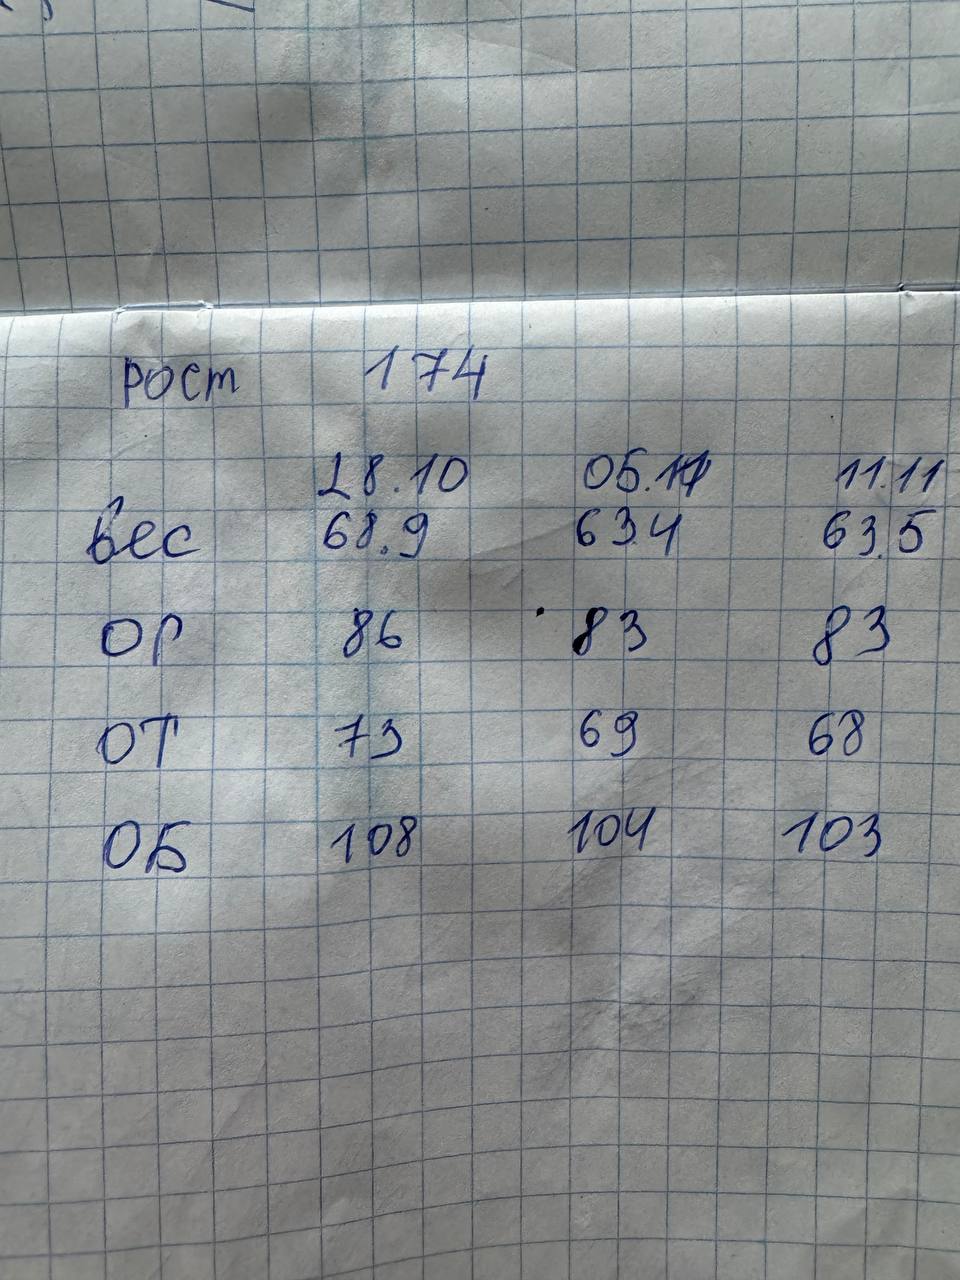 рост 174
28.10 05.11 11.11
вес 68.9 63.4 63.5
ОР 86 83 83
ОТ 73 69 68
ОБ 108 104 103